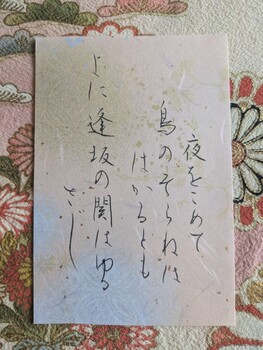 夜をこめて
鳥のそらねは
はかるとも
よに逢坂の関はゆる
さじ